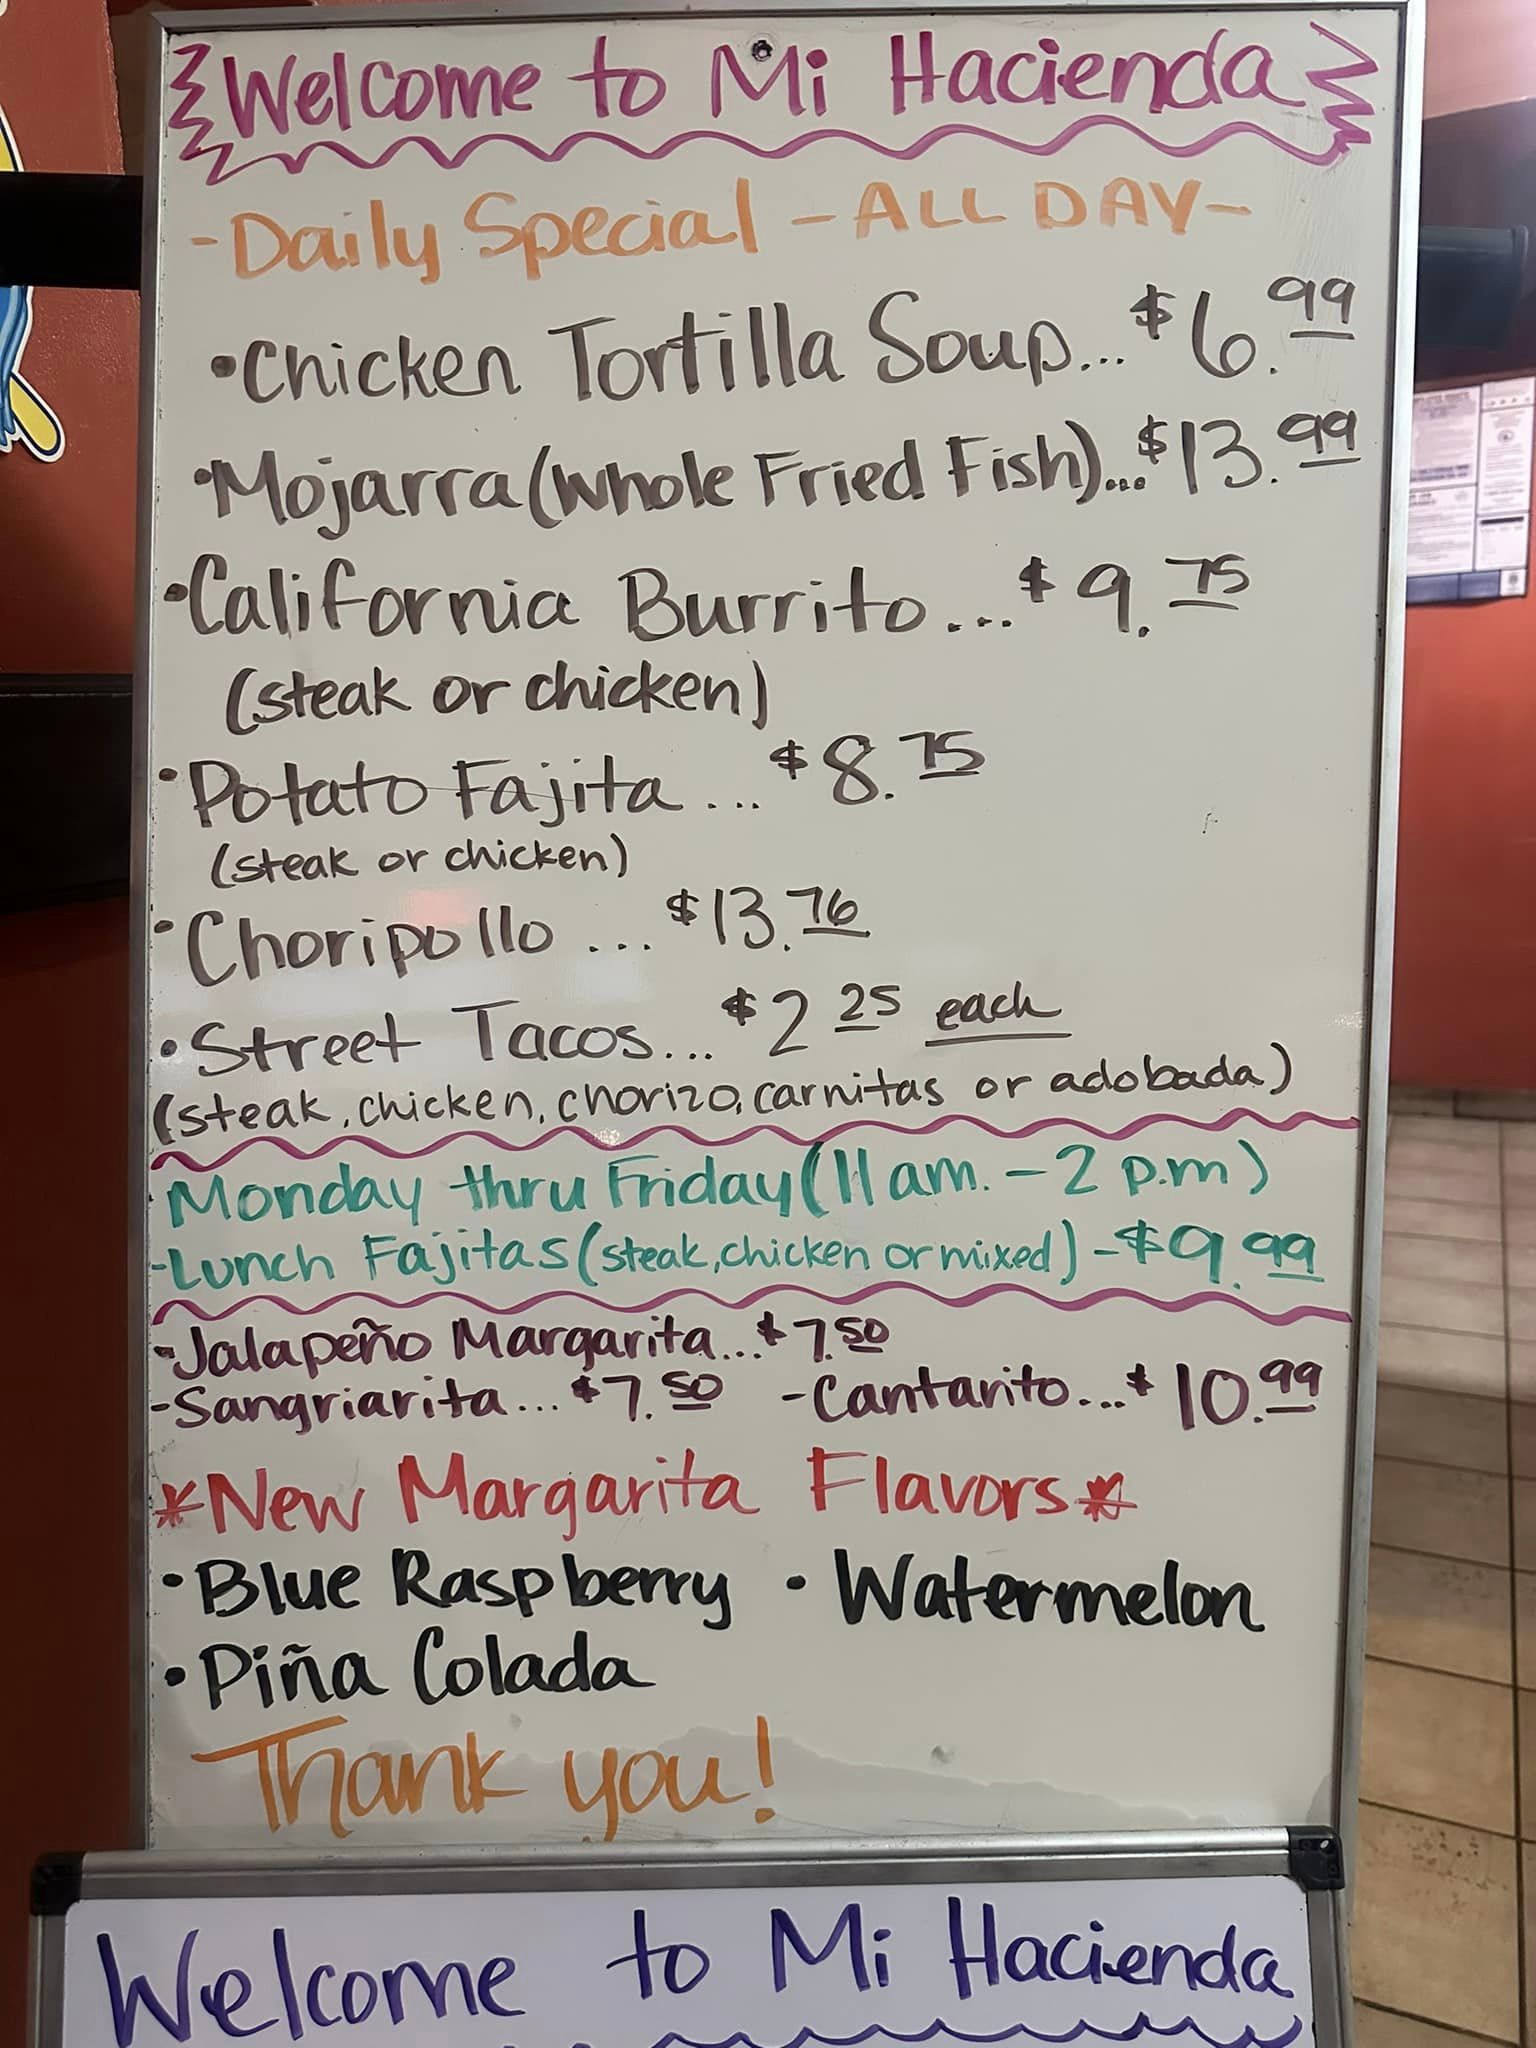 Welcome to Mi Hacienda
-Daily Special - ALL DAY-
•Chicken Tortilla Soup...$6.99
•Mojarra(Whole Fried Fish)...$13.99
•California Burrito...$9.75
(steak or chicken)
•Potato Fajita...$8.75
(steak or chicken)
•Choripollo...$13.76
•Street Tacos...$2 25 each
(steak, chicken, chorizo, carnitas or adobada)
Monday thru Friday(11am.-2 p.m)
-Lunch Fajitas(steak, chicken or mixed)-$9.99
-Jalapeño Margarita...$7.50
-Sangriarita...$7.50 -Cantarito...$10.99
*New Margarita Flavors*
•Blue Raspberry •Watermelon
•Piña Colada
Thank you!
Welcome to Mi Hacienda